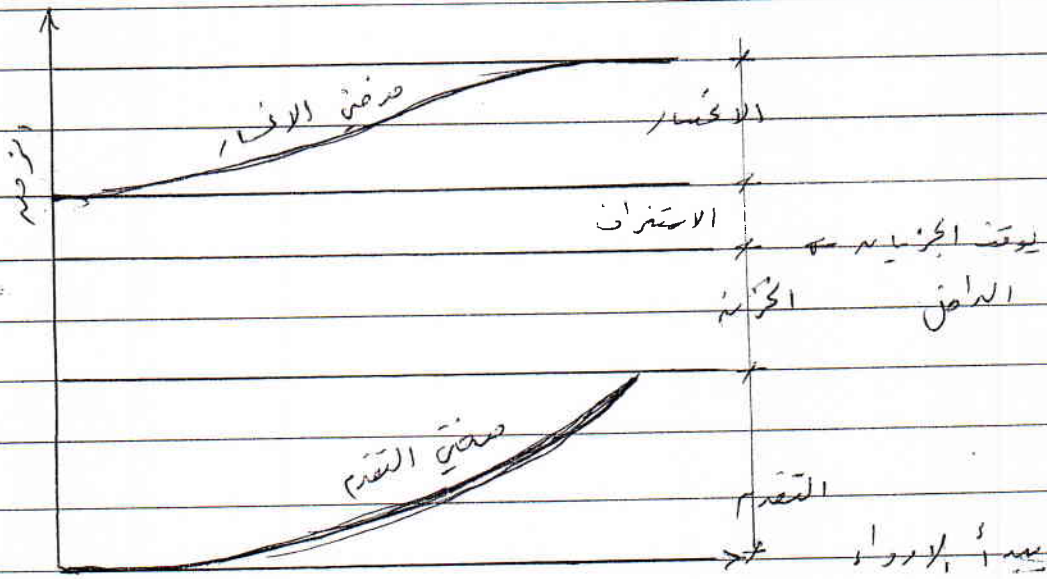 منحني الانحسار
الانحسار
الزمن
الاستنزاف
يوقف الجريان ←
الداخل
الخزن
منحني التقدم
التقدم
يبدأ الارواء